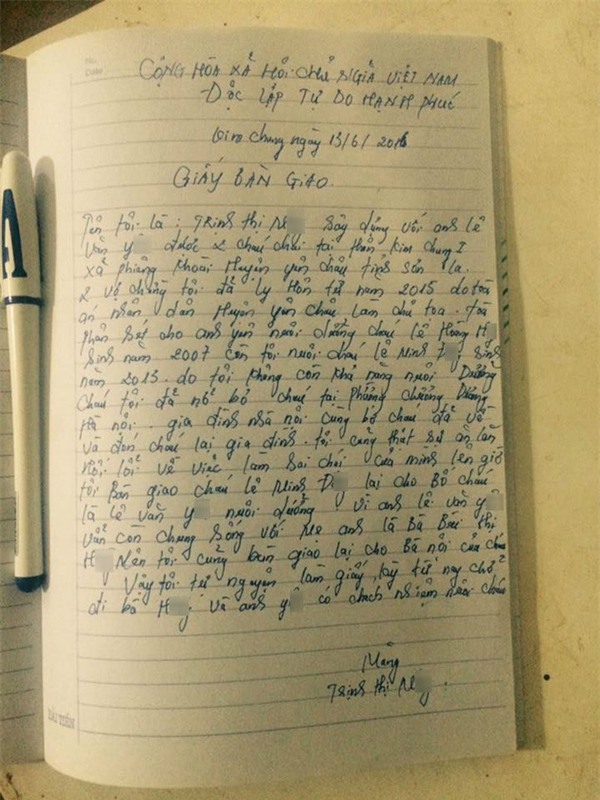 No.
Date
CỘNG HÒA XẢ HỎI CHỦ NGHĨA VIỆT NAM
ĐỘC LẬP TỰ DO HẠNH PHÚC
Kim chung ngày 13/6/2016
GIẤY BÀN GIAO
Tên tôi là: Trịnh thị N Sây dựng với anh lê
văn y được 2 cháu chai tại thôn kim chung I
xã phiêng khoài Huyện yên châu tỉnh sơn la.
2 vợ chồng tôi đã ly Hôn từ năm 2015 do tòa
án nhân dân Huyện yên châu làm chủ tọa. tòa
phân sét cho anh yên nuôi dưỡng cháu lê Hoàng H
Sinh năm 2007 còn tôi nuôi cháu lê Minh Đ Sinh
năm 2013. do tôi không còn khả năng nuôi Dưỡng
cháu tôi đã nở bỏ cháu tại Phường chương Dương
Hà nội. gia đình nhà nội cùng bố cháu đã về
và đón cháu lại gia đình. tôi cũng thật sự ăn lăn
hối lỗi về việc làm sai chái của mình lên giờ
tôi Bàn giao cháu lê Minh Đ lại cho Bố cháu
là lê văn y nuôi dưỡng vì anh lê văn y
vẫn còn chung Sống với Mẹ anh là Bà Bùi thị
H Nên tôi cũng bàn giao lại cho Bà nội của cháu
Vậy tôi tự nguyện làm giấy, kỳ từ nay chở
đi bà H và anh y có chách nhiệm nuôi cháu
Trịnh thị N
HẢI TIẾN